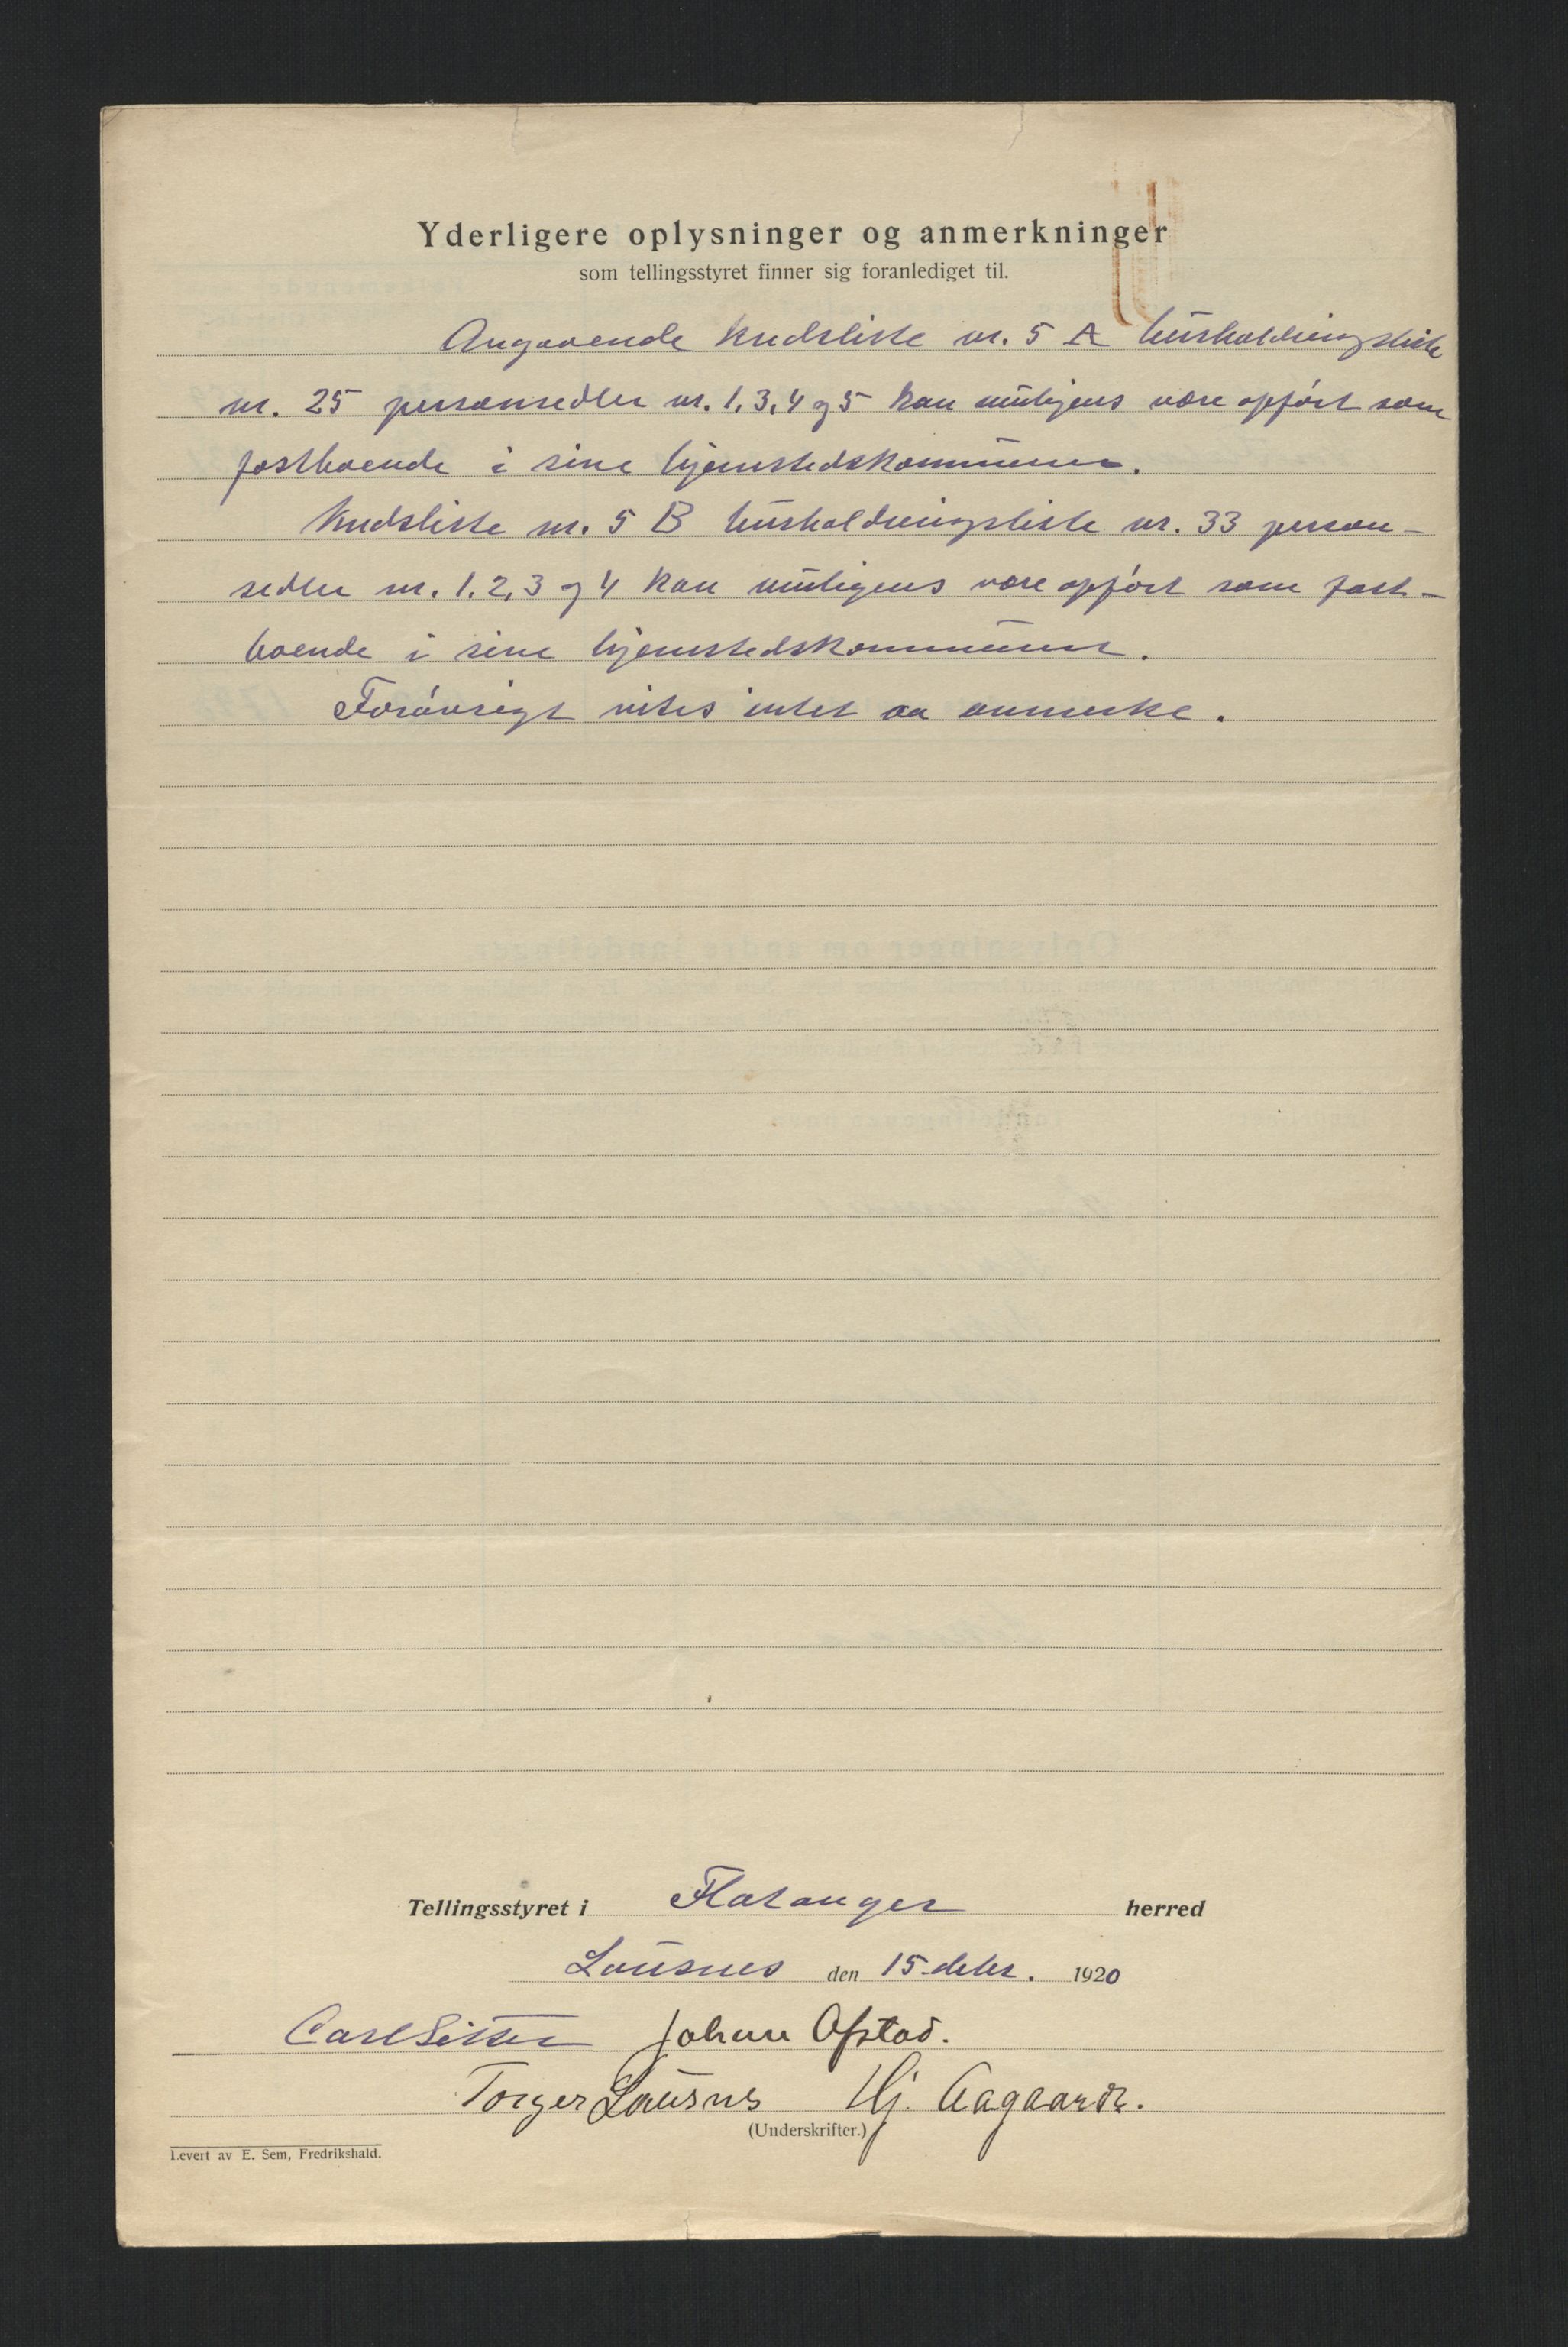 Yderligere oplysninger og anmerkninger
som tellingsstyret finner sig foranlediget til.
Angaaende kredsliste nr. 5 A husholdningsliste
nr. 25 personsedler nr. 1, 3, 4 og 5 kan muligens være opført som
fastboende i sine hjemstedskommuner.
Kredsliste nr. 5 B husholdningsliste nr. 33 person-
sedler nr. 1, 2, 3 og 4 kan muligens være opført som fast-
boende i sine hjemstedskommuner.
Forøvrigt vites intet aa anmerke.
Tellingsstyret i Flatanger herred
Lausnes den 15. debr. 1920
Carl Sitter Johan Ofstad.
Torger Lausnes Hj. Aagaard.
(Underskrifter.)
Levert av E. Sem, Fredrikshald.